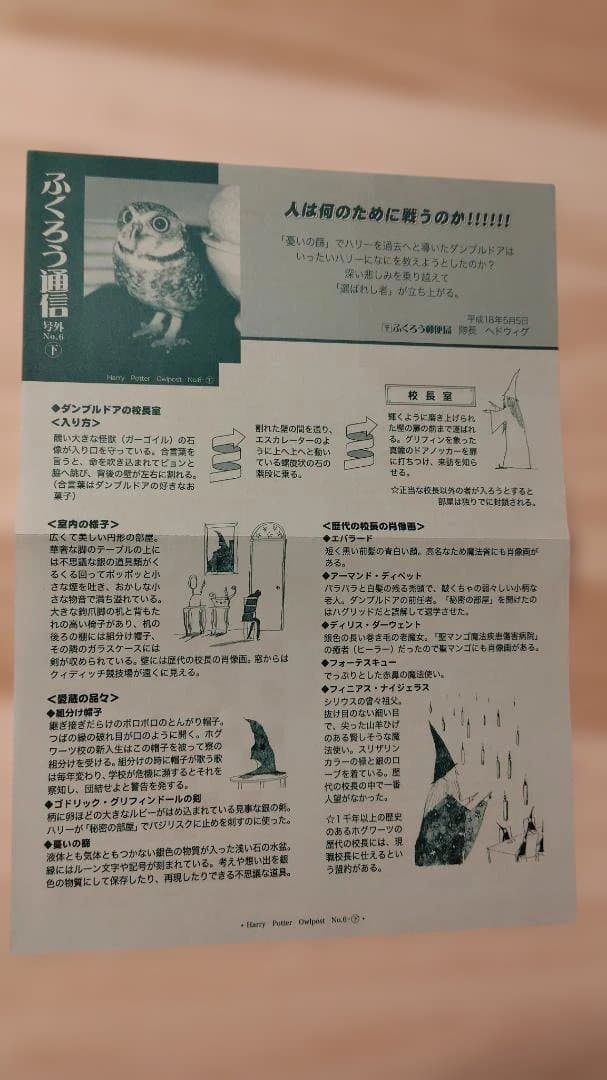 ふくろう通信
号外
No.6
下
Harry Potter Owlpost No.6 下
人は何のために戦うのか!!!!!!
「憂いの篩」でハリーを過去へと導いたダンブルドアは
いったいハリーになにを教えようとしたのか?
深い悲しみを乗り越えて
「選ばれし者」が立ち上がる。
平成18年5月5日
ふくろう郵便局 隊長 ヘドウィグ
◆ダンブルドアの校長室
<入り方>
醜い大きな怪獣(ガーゴイル)の石
像が入り口を守っている。合言葉を
言うと、命を吹き込まれてピョンと
脇へ跳び、背後の壁が左右に割れる。
(合言葉はダンブルドアの好きなお
菓子)
割れた壁の間を通り、
エスカレーターのよ
うに上へ上へと動い
ている螺旋状の石の
階段に乗る。
校長室
輝くように磨き上げられ
た樫の扉の前まで運ばれ
る。グリフィンを象った
真鍮のドアノッカーを扉
に打ちつけ、来訪を知ら
せる。
☆正当な校長以外の者が入ろうとすると
部屋は独りでに封鎖される。
<室内の様子>
広くて美しい円形の部屋。
華奢な脚のテーブルの上に
は不思議な銀の道具類がく
るくる回ってポッポッと小
さな煙を吐き、おかしな小
さな物音で満ち溢れている。
大きな鉤爪脚の机と背もた
れの高い椅子があり、机の
後ろの棚には組分け帽子、
その隣のガラスケースには
剣が収められている。壁には歴代の校長の肖像画。窓からは
クィディッチ競技場が遠くに見える。
<愛蔵の品々>
◆組分け帽子
継ぎ接ぎだらけのボロボロのとんがり帽子。
つばの縁の破れ目が口のように開く。ホグ
ワーツ校の新入生はこの帽子を被って寮の
組分けを受ける。組分けの時に帽子が歌う歌
は毎年変わり、学校が危機に瀕するとそれを
察知し、団結せよと警告を発する。
◆ゴドリック・グリフィンドールの剣
柄に卵ほどの大きなルビーがはめ込まれている見事な銀の剣。
ハリーが「秘密の部屋」でバジリスクに止めを刺すのに使った。
◆憂いの篩
液体とも気体ともつかない銀色の物質が入った浅い石の水盆。
縁にはルーン文字や記号が刻まれている。考えや想い出を銀
色の物質にして保存したり、再現したりできる不思議な道具。
<歴代の校長の肖像画>
◆エバラード
短く黒い前髪の青白い顔。高名なため魔法省にも肖像画が
ある。
◆アーマンド・ディペット
パラパラと白髪の残る禿頭で、皺くちゃの弱々しい小柄な
老人。ダンブルドアの前任者。「秘密の部屋」を開けたの
はハグリッドだと誤解して退学させた。
◆ディリス・ダーウェント
銀色の長い巻き毛の老魔女。「聖マンゴ魔法疾患傷害病院」
の癒者(ヒーラー)だったので聖マンゴにも肖像画がある。
◆フォーテスキュー
でっぷりとした赤鼻の魔法使い。
◆フィニアス・ナイジェラス
シリウスの曾々祖父。
抜け目のない細い目
で、尖った山羊ひげ
のある賢しそうな魔
法使い。スリザリン
カラーの緑と銀のロ
ーブを着ている。歴
代の校長の中で一番
人望がなかった。
☆1千年以上の歴史
のあるホグワーツの
歴代の校長には、現
職校長に仕えるとい
う盟約がある。
・Harry Potter Owlpost No.6-下・